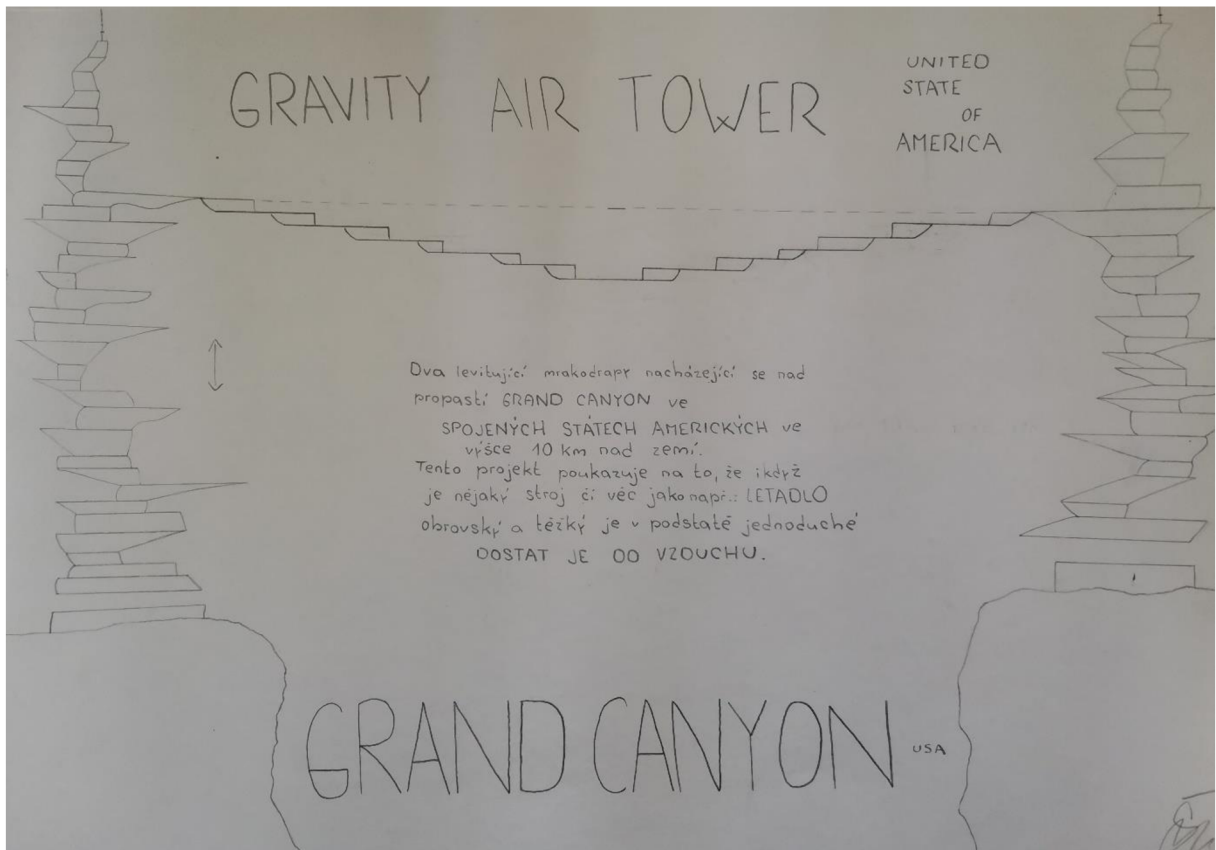 GRAVITY AIR TOWER
UNITED
STATE
OF
AMERICA
Dva levitující mrakodrapy nacházející se nad
propastí GRAND CANYON ve
SPOJENÝCH STÁTECH AMERICKÝCH ve
výšce 10 km nad zemí.
Tento projekt poukazuje na to, že ikdyž
je nějaký stroj či věc jako např.: LETADLO
obrovský a těžký je v podstatě jednoduché
DOSTAT JE DO VZDUCHU.
GRAND CANYON USA